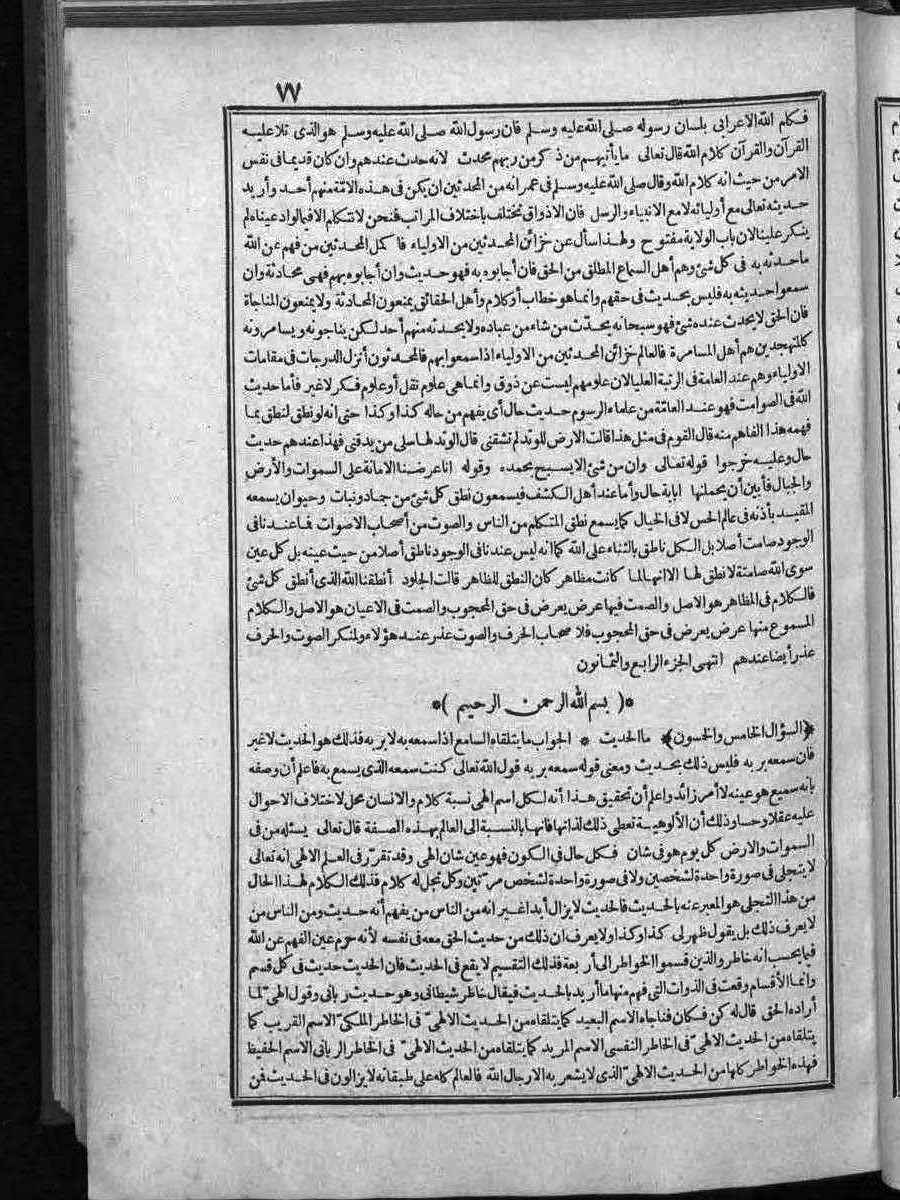 ٧٧
فكلم الله الاعرابى بلسان رسوله صلى الله عليه وسلم فان رسول الله صلى الله عليه وسلم هو الذى تلا عليه
القرآن والقرآن كلام الله قال تعالى ما يأتيهم من ذكر من ربهم محدث لانه حدث عندهم وان كان قديما فى نفس
الامر من حيث انه كلام الله وقال صلى الله عليه وسلم فى عمر انه من المحدثين ان يكن فى هذه الامّة منهم أحد وأريد
حديثه تعالى مع أوليائه لا مع الانبياء والرسل فان الاذواق تختلف باختلاف المراتب فنحن لا نتكلم الا فيما لو ادعيناه لم
ينكر علينا لان باب الولاية مفتوح ولهذا سأل عن خزائن المحدثين من الاولياء فا كمل المحدثين من فهم عن الله
ما حدثه به فى كل شئ وهم أهل السماع المطلق من الحق فان أجابوه به فهو حديث وان أجابوه بهم فهى محادثة وان
سمعوا حديثه به فليس بحديث فى حقهم وانما هو خطاب أو كلام وأهل الحقائق يمنعون المحادثة ولا يمنعون المناجاة
فان الحق لا يحدث عنده شئ فهو سبحانه يحدّث من شاء من عباده ولا يحدثه منهم أحد لكن يناجونه ويسامرونه
كالمتهجدين هم أهل المسامرة فالعالم خزائن المحدثين من الاولياء اذا سمعوا بهم فالمحدثون أنزل الدرجات فى مقامات
الاولياء وهم عند العامة فى الرتبة العليا لان علومهم ليست عن ذوق وانما هى علوم نقل أو علوم فكر لا غير فأما حديث
الله فى الصوامت فهو عند العامّة من علماء الرسوم حديث حال أى يفهم من حاله كذا وكذا حتى انه لو نطق لنطق بما
فهمه هذا الفاهم منه قال القوم فى مثل هذا قالت الارض للوتد لم تشقنى قال الوتد لها سلى من يدقنى فهذا عندهم حديث
حال وعليه خرجوا قوله تعالى وان من شئ الا يسبح بحمده وقوله انا عرضنا الامانة على السموات والأرض
والجبال فأبين أن يحملنها اباية حال وأما عند أهل الكشف فيسمعون نطق كل شئ من جماد ونبات وحيوان يسمعه
المقيد بأذنه فى عالم الحس لا فى الخيال كما يسمع نطق المتكلم من الناس والصوت من أصحاب الاصوات فما عندنا فى
الوجود صامت أصلا بل الكل ناطق بالثناء على الله كما انه ليس عندنا فى الوجود ناطق أصلا من حيث عينه بل كل عين
سوى الله صامتة لا نطق لها الا انها لما كانت مظاهر كان النطق للظاهر قالت الجلود أنطقنا الله الذى أنطق كل شئ
فالكلام فى المظاهر هو الاصل والصمت فيها عرض يعرض فى حق المحجوب والصمت فى الاعيان هو الاصل والكلام
المسموع منها عرض يعرض فى حق المحجوب فلا صحاب الحرف والصوت عذر عند هؤلاء ولمنكر الصوت والحرف
عذر أيضا عندهم انتهى الجزء الرابع والثمانون
*( بسم الله الرحمن الرحيم )*
﴿السؤال الخامس والخمسون﴾ ما الحديث * الجواب ما يتلقاه السامع اذا سمعه به لا بربه فذلك هو الحديث لا غير
فان سمعه بربه فليس ذلك بحديث ومعنى قوله سمعه بربه قول الله تعالى كنت سمعه الذى يسمع به فاعلم أن وصفه
بانه سميع هو عينه لا أمر زائد واعلم أن تحقيق هذا أنه لكل اسم الهى نسبة كلام والانسان محل لاختلاف الاحوال
عليه عقلا وحسا وذلك أن الألوهية تعطى ذلك لذاتها فانها بالنسبة الى العالم بهذه الصفة قال تعالى يسئله من فى
السموات والارض كل يوم هو فى شان فكل حال فى الكون فهو عين شان الهى وقد تقرّر فى العلم الالهى انه تعالى
لا يتجلى فى صورة واحدة لشخصين ولا فى صورة واحدة لشخص مرّتين وكل تجل له كلام فذلك الكلام لهذا الحال
من هذا التجلى هو المعبر عنه بالحديث فالحديث لا يزال أبدا غير انه من الناس من يفهم أنه حديث ومن الناس من
لا يعرف ذلك بل يقول ظهر لى كذا وكذا ولا يعرف ان ذلك من حديث الحق معه فى نفسه لأنه حرم عين الفهم عن الله
فيما يحسب انه خاطر والذين قسموا الخواطر الى أربعة فذلك التقسيم لا يقع فى الحديث فان الحديث حديث فى كل قسم
وانما الأقسام وقعت فى الذوات التى فهم منها ما أريد بالحديث فيقال خاطر شيطانى وهو حديث ربانى وقول الهىّ لما
أراده الحق قال له كن فكان فناجاه الاسم البعيد كما يتلقاه من الحديث الالهىّ فى الخاطر الملكىّ الاسم القريب كما
يتلقاه من الحديث الالهىّ فى الخاطر النفسى الاسم المريد كما يتلقاه من الحديث الالهىّ فى الخاطر الربانى الاسم الحفيظ
فهذه الخواطر كلها من الحديث الالهىّ الذى لا يشعر به الا رجال الله فالعالم كله على طبقاته لا يزالون فى الحديث فمن